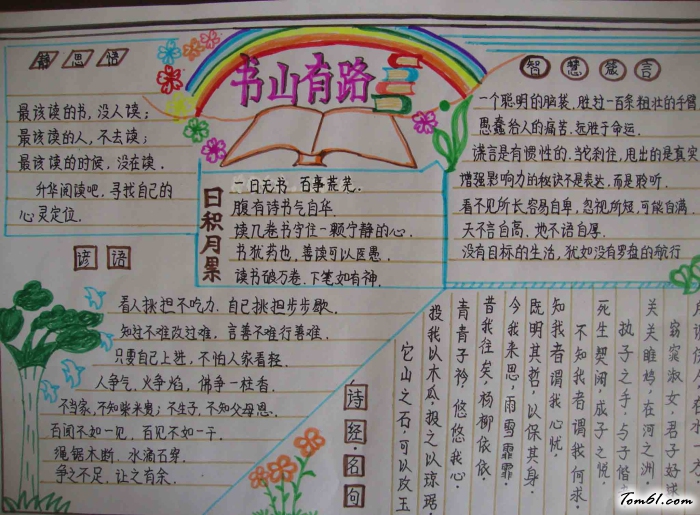 静思语
最该读的书,没人读;
最该读的人,不去读;
最该读的时候,没在读.
升华阅读吧,寻找自己的
心灵定位.
书山有路
日积月累
一日无书 百事荒芜.
腹有诗书气自华.
读几卷书守住一颗宁静的心.
书犹药也,善读可以医愚.
读书破万卷,下笔如有神.
智慧箴言
一个聪明的脑袋,胜过一百条粗壮的手臂
愚蠢给人的痛苦,远胜于命运.
谎言是有惯性的.当它刹住,甩出的是真实
增强影响力的秘诀不是表达,而是聆听.
看不见所长,容易自卑,忽视所短,可能自满.
天不言自高,地不语自厚.
没有目标的生活,犹如没有罗盘的航行
谚语
看人挑担不吃力,自己挑担步步歇.
知过不难改过难,言善不难行善难.
只要自己上进,不怕人家看轻.
人争气,火争焰,佛争一柱香.
不当家,不知柴米贵;不生子,不知父母恩.
百闻不如一见,百见不如一干.
绳锯木断,水滴石穿.
争之不足,让之有余.
诗经·名句
关关雎鸠,在河之洲.
窈窕淑女,君子好逑
执子之手,与子偕
死生契阔,成子之悦.
不知我者谓我何求.
知我者谓我心忧.
既明其哲,以保其身.
今我来思,雨雪霏霏.
昔我往矣,杨柳依依.
青青子衿,悠悠我心.
投我以木瓜,报之以琼琚.
它山之石,可以攻玉
Tom61.com